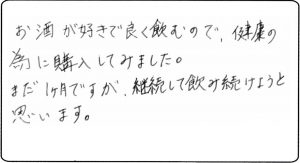 お酒が好きで良く飲むので、健康の
為に購入してみました。
まだ1ヶ月ですが、継続して飲み続けようと
思います。